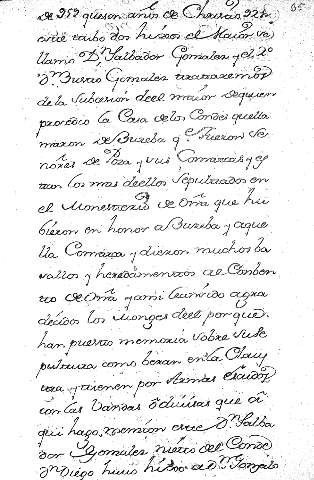 de 952 que son años de Christo 924
este tubo dos hixos el Maior se
llamo Dn Salbador Gomales y el 2o
dn Bustio Gomales trataremos
de la Subcesion de el maior de quien
procedio la Casa de los Condes que lla
maron de Bureba y fueron Se
ñores de Poza y sus Comarcas y es
tan los mas de ellos Sepultados en
el Monesterio de Oña que hu
bieron en honor a Bureba y aque
lla Comarca y dieron muchos ba
sallos y heredamientos al Conben
to de Oña y ami leunrido agra
decidos los Monges de el por que
han puesto memoria sobre su Se
pultura como beran en la Claus
tra y tienen por Armas escudos
con las bandas o divisas que a
qui hago mencion este Dn Salba
dor Gomales nieto del Conde
Dn Diego hubo hixo a Dn Gonzalo